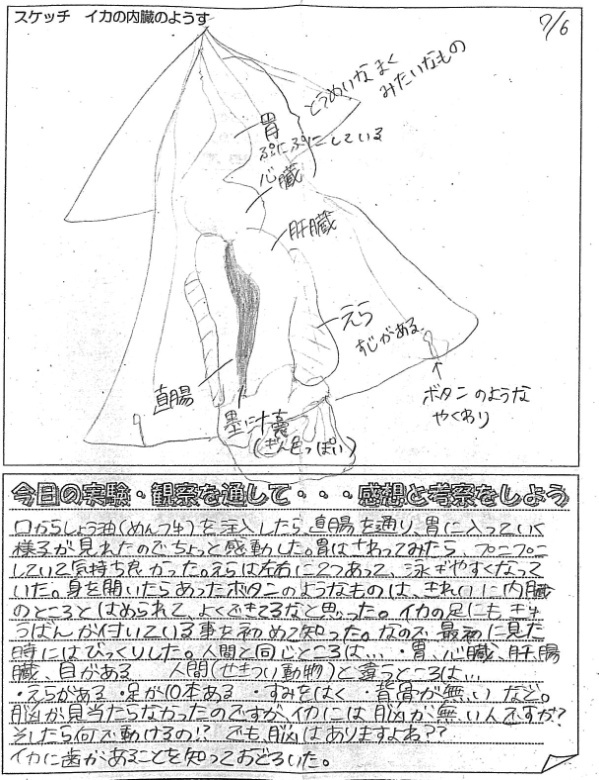 スケッチ イカの内臓のようす
7/6
とうめいなまく
みたいなもの
胃
ぷにぷにしている
心臓
肝臓
えら
すじがある
直腸
墨汁嚢
(ぎん色っぽい)
ボタンのような
やくわり
今日の実験・観察を通して・・・感想と考察をしよう
口からしょう油(めんつゆ)を注入したら、直腸を通り、胃に入っていく
様子が見れたのでちょっと感動した。胃はさわってみたら、プニプニ
していて気持ち良かった。えらは左右に2つあって、泳ぎやすくなって
いた。身を開いたらあったボタンのようなものは、きれいに内臓
のところとはめられて、よくできてるなと思った。イカの足にもきゅ
うばんが付いている事を初めて知った。なので最初に見た
時にはびっくりした。人間と同じところは…・胃、心臓、肝腸
臓、目がある 人間(せきつい動物)と違うところは…
・えらがある・足が10本ある・すみをはく・背骨が無いなど。
脳が見当たらなかったのですが、イカには脳が無いんですか?
そしたら何で動けるの!? でも脳はありますよね??
イカに歯があることを知っておどろいた。